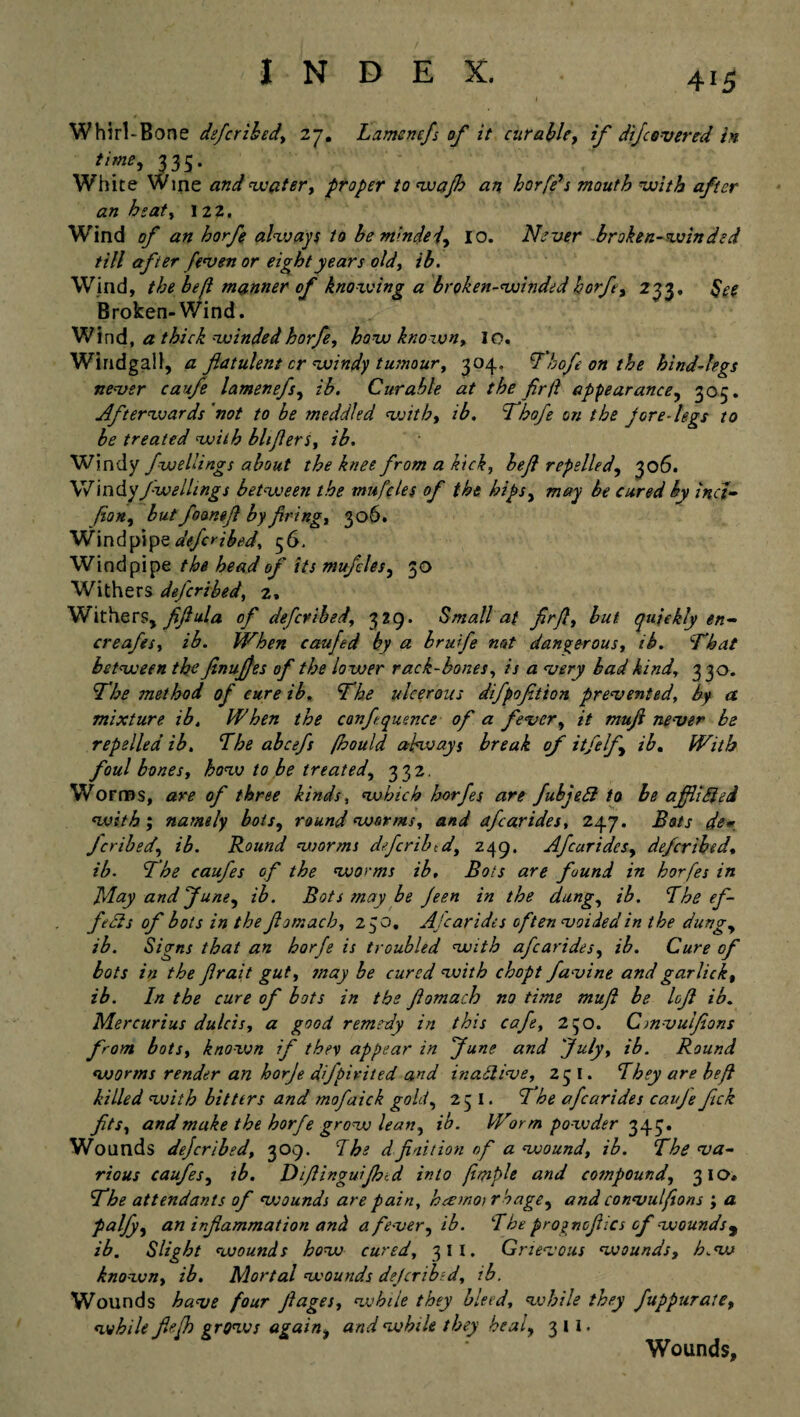 INDEX. 415
Whirl-Bone deſcribed, 27. Lameneſs of it curable, if diſcovered in
time, 335.
White Wine and water, proper to waſh an horſe's mouth with after
an heat, 122.
Wind of an horſe always to be minded, 10. Never broken-winded
till after ſeven or eight years old, ib.
Wind, the beſt manner of knowing a broken-winded horſe, 233. See
Broken-Wind.
Wind, a thick winded horſe, how known, 10.
Windgall, a flatulent or windy tumour, 304. Thoſe on the hind-legs
never cauſe lameneſs, ib. Curable at the firſt appearance, 305.
Afterwards not to be meddled with, ib. Thoſe on the fore-legs to
be treated with bliſters, ib.
Windy ſwellings about the knee from a kick, beſt repelled, 306.
Windy ſwellings between the muſcles of the hips, may be cured by inci-
ſion, but ſooneſt by firing, 306.
Windpipe deſcribed, 56.
Windpipe the head of its muſcles, 30
Withers deſcribed, 2.
Withers, fiſtula of deſcribed, 329. Small at firſt, but quickly en-
creaſes, ib. When cauſed by a bruiſe not dangerous, ib. That
between the ſinuſſes of the lower rack-bones, is a very bad kind, 330.
The method of cure ib. The ulcerous diſpoſition prevented, by a
mixture ib. When the conſequence of a fever, it muſt never be
repelled ib. The abceſs ſhould always break of itſelf, ib. With
foul bones, how to be treated, 332.
Worms, are of three kinds, which horſes are ſubject to be afflicted
with; namely bots, round worms, and aſcarides, 247. Bots de-
ſcribed, ib. Round worms deſcribed, 249. Aſcarides, deſcribed,
ib. The cauſes of the worms ib. Bots are found in horſes in
May and June, ib. Bots may be ſeen in the dung, ib. The ef-
fects of bots in the ſtomach, 250. Aſcarides often voided in the dung,
ib. Signs that an horſe is troubled with aſcarides, ib. Cure of
bots in the ſtrait gut, may be cured with chopt ſavine and garlick,
ib. In the cure of bots in the ſtomach no time muſt be loſt ib.
Mercurius dulcis, a good remedy in this caſe, 250. Convulſions
from bots, known if they appear in June and July, ib. Round
worms render an horſe diſpirited and inactive, 251. They are beſt
killed with bitters and moſaick gold, 251. The aſcarides cauſe ſick
fits, and make the horſe grow lean, ib. Worm powder 345.
Wounds deſcribed, 309. The definition of a wound, ib. The va-
rious cauſes, ib. Diſtinguiſhed into ſimple and compound, 310.
The attendants of wounds are pain, hæmorrhage, and convulſions; a
palſy, an inflammation and a fever, ib. The prognoſtics of wounds,
ib. Slight wounds how cured, 311. Grievous wounds, how
known, ib. Mortal wounds deſcribed, ib.
Wounds have four ſtages, while they bleed, while they ſuppurate,
while fleſh grows again, and while they heal, 311.
Wounds,